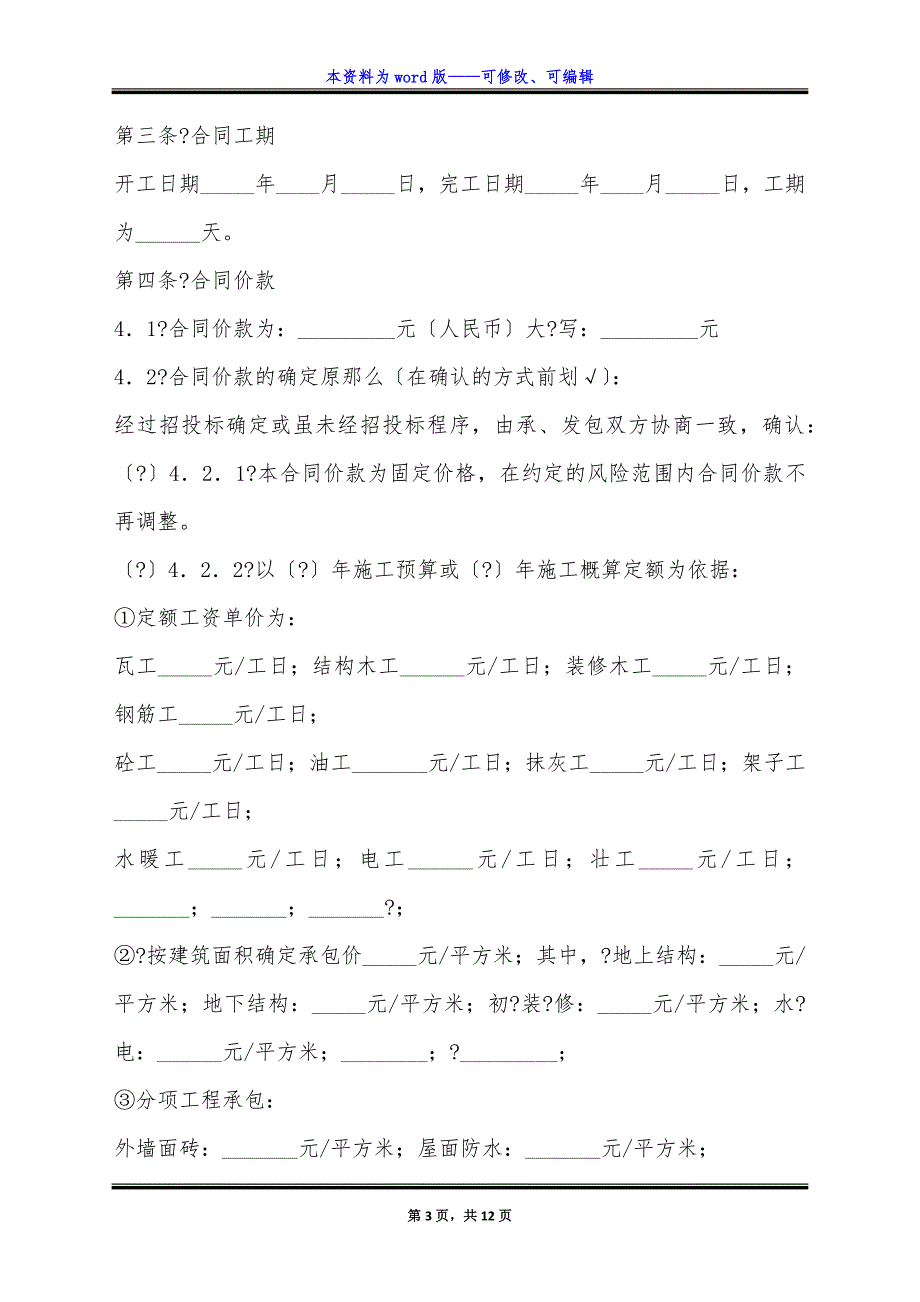 本资料为 word 版——可修改、可编辑
第三条?合同工期
开工日期_____年____月_____日，完工日期_____年____月_____日，工期
为______天。
第四条?合同价款
4．1?合同价款为：_________元〔人民币〕大?写：_________元
4．2?合同价款的确定原那么〔在确认的方式前划√〕：
经过招投标确定或虽未经招投标程序，由承、发包双方协商一致，确认：
〔?〕4．2．1?本合同价款为固定价格，在约定的风险范围内合同价款不
再调整。
〔?〕4．2．2?以〔?〕年施工预算或〔?〕年施工概算定额为依据：
①定额工资单价为：
瓦工_____元/工日；结构木工______元/工日；装修木工_____元/工日；
钢筋工_____元/工日；
砼工_____元/工日；油工_______元/工日；抹灰工_____元/工日；架子工
_____元/工日；
水暖工_____元/工日；电工______元/工日；壮工_____元/工日；
_______；_______；_______?；
②?按建筑面积确定承包价_____元/平方米；其中，?地上结构：_____元/
平方米；地下结构：_____元/平方米；初?装?修：_____元/平方米；水?
电：______元/平方米；________；?_________；
③分项工程承包：
外墙面砖：_______元/平方米；屋面防水：_______元/平方米；
第 3 页，共 12 页